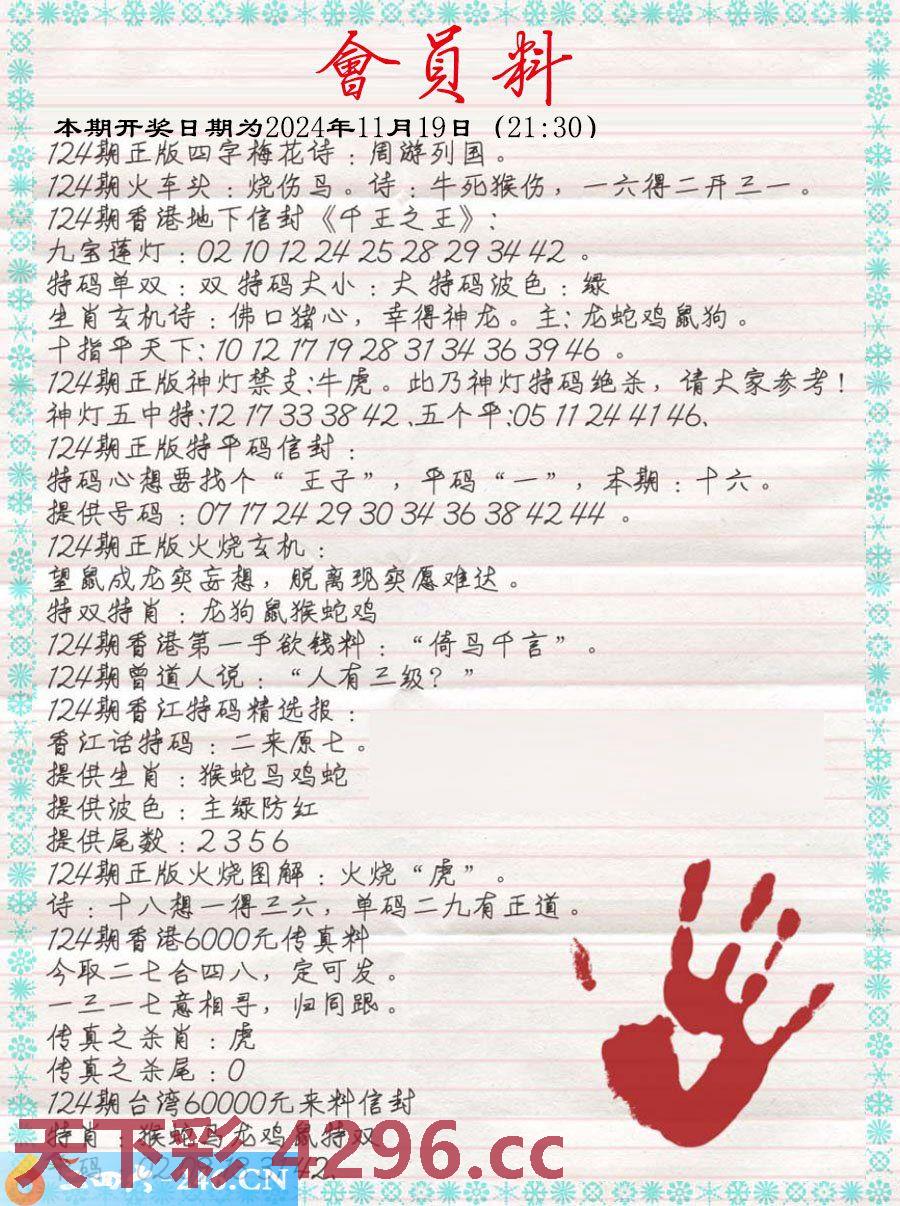 會員料
本期开奖日期为2024年11月19日（21:30）
124期正版四字梅花诗：周游列国。
124期火车头：烧伤鸟。诗：牛死猴伤，一六得二开三一。
124期香港地下信封《千王之王》：
九宝莲灯：02 10 12 24 25 28 29 34 42 。
特码单双：双 特码大小：大 特码波色：绿
生肖玄机诗：佛口猪心，幸得神龙。主：龙蛇鸡鼠狗。
十指平天下：10 12 17 19 28 31 34 36 39 46 。
124期正版神灯禁支：牛虎。此乃神灯特码绝杀，请大家参考！
神灯五中特：12 17 33 38 42 、五个平：05 11 24 41 46、
124期正版特平码信封：
特码心想要找个“王子”，平码“一”，本期：十六。
提供号码：07 17 24 29 30 34 36 38 42 44 。
124期正版火烧玄机：
望鼠成龙实妄想，脱离现实愿难达。
特双特肖：龙狗鼠猴蛇鸡
124期香港第一手欲钱料：“倚鸟千言”。
124期曾道人说：“人有三级？”
124期香江特码精选报：
香江话特码：二来原七。
提供生肖：猴蛇鸟鸡蛇
提供波色：主绿防红
提供尾数：2 3 5 6
124期正版火烧图解：火烧“虎”。
诗：十八想一得三六，单码二九有正道。
124期香港6000元传真料
今取二七合四八，定可发。
一三一七意相寻，归同跟。
传真之杀肖：虎
传真之杀尾：0
124期台湾60000元来料信封
特肖：猴蛇马龙鸡鼠特双
天下彩 4296.cc
246.CN